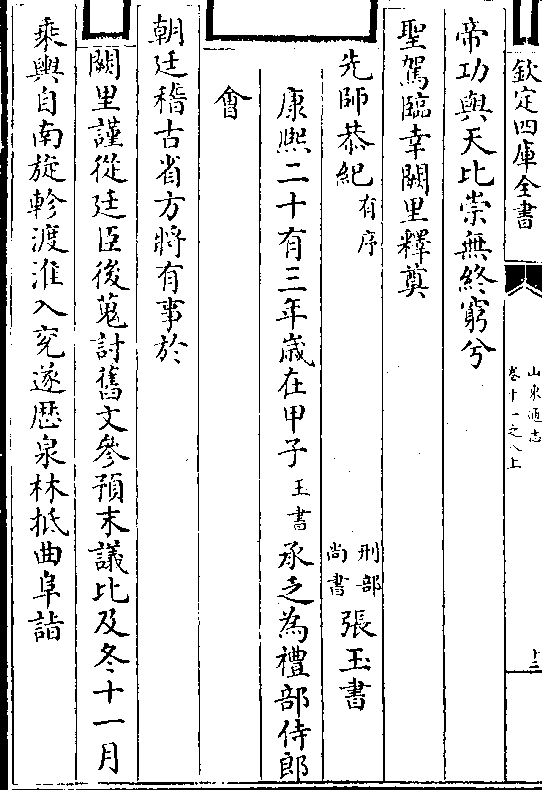 欽定四庫全書
山東通志
卷十一之八上
十二
帝功與天比崇無終窮兮
聖駕臨幸闕里釋奠
先師恭紀有序
刑部尚書張玉書
康熙二十有三年歲在甲子玉書承乏為禮部侍郎
會
朝廷稽古省方將有事於
闕里謹從廷臣後蒐討舊文參預末議比及冬十一月
乘輿自南旋軫渡淮入兖遂歷泉林抵曲阜詣